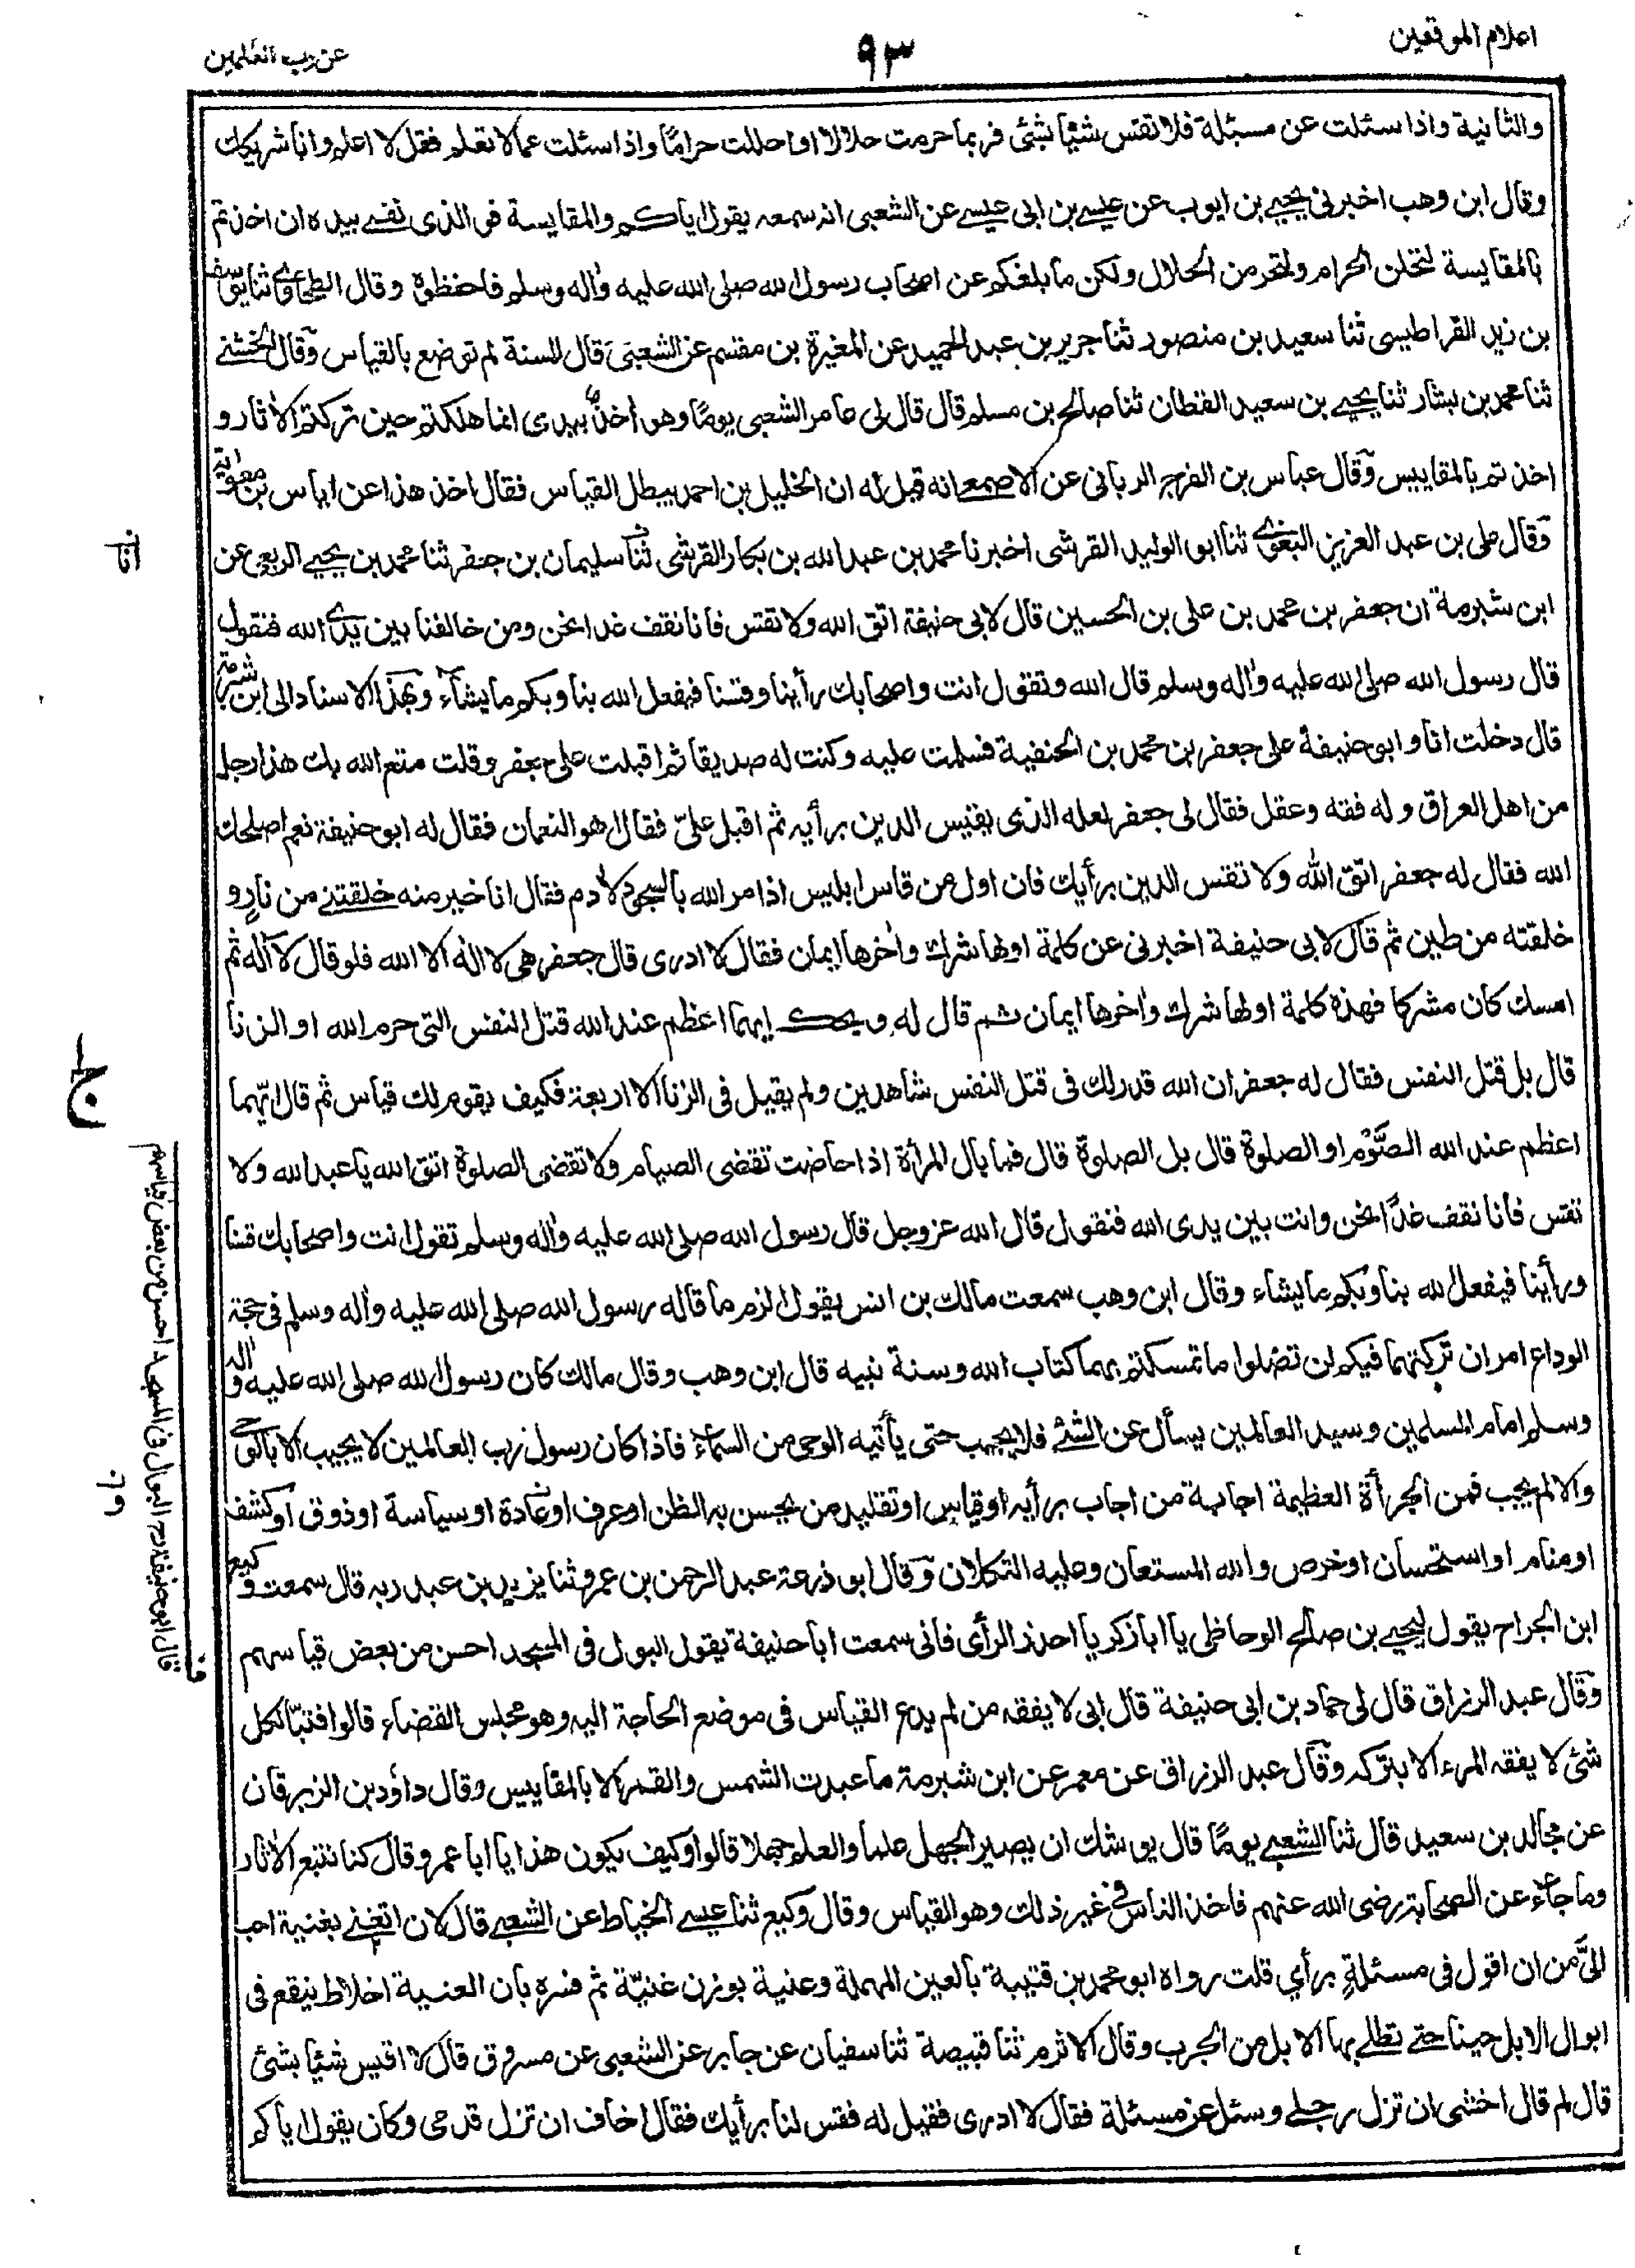 اعلام الموقعين
٩٣
عن رب العلمين
والثانية واذا سئلت عن مسئلة فلا تقس شيئا بشئ فربما حرمت حلالا او احللت حراما واذا سئلت عما لا تعلم فقل لا اعلم وانا شريكك
وقال ابن وهب اخبرني يحيى بن ايوب عن عيسى بن ابي عيسى عن الشعبي انه سمعه يقول اياكم والمقايسة فو الذي نفسي بيده ان اخذتم
بالمقايسة لتحلن الحرام ولتحرمن الحلال ولكن ما بلغكم عن اصحاب رسول الله صلى الله عليه واله وسلم فاحفظوه وقال الطحاوي ثنا يوسف
بن زيد القراطيسي ثنا سعيد بن منصور ثنا جرير بن عبد الحميد عن المغيرة بن مقسم عن الشعبي قال السنة لم توضع بالقياس وقال الخشني
ثنا محمد بن بشار ثنا يحيى بن سعيد القطان ثنا صالح بن مسلم قال قال لي عامر الشعبي يوما وهو اخذ بيدي انما هلكتم حين تركتم الاثار و
اخذتم بالمقاييس وقال عباس بن الفرج الرباني عن الاصمعي انه قيل له ان الخليل بن احمد يبطل القياس فقال اخذ هذا عن اياس بن معوية
وقال علي بن عبد العزيز البغوي ثنا ابو الوليد القرشي اخبرنا محمد بن عبد الله بن بكار القرشي ثنا سليمان بن جعفر ثنا محمد بن يحيى الربعي عن
ابن شبرمة ان جعفر بن محمد بن علي بن الحسين قال لابي حنيفة اتق الله ولا تقس فانا نقف غدا نحن ومن خالفنا بين يدي الله فنقول
قال رسول الله صلى الله عليه واله وسلم قال الله وتقول انت واصحابك رأينا وقسنا فيفعل الله بنا وبكم ما يشاء وبهذا الاسناد الى ابن شبرمة
قال دخلت انا وابو حنيفة على جعفر بن محمد بن الحنفية فسلمت عليه وكنت له صديقا ثم اقبلت على جعفر وقلت متع الله بك هذا رجل
من اهل العراق وله فقه وعقل فقال لي جعفر لعله الذي يقيس الدين برأيه ثم اقبل علي فقال اهو النعمان فقال له ابو حنيفة نعم اصلحك
الله فقال له جعفر اتق الله ولا تقس الدين برأيك فان اول من قاس ابليس اذا مر الله بالسجود لادم فقال انا خير منه خلقتني من نار و
خلقته من طين ثم قال لابي حنيفة اخبرني عن كلمة اولها شرك واخرها ايمان فقال لا ادري قال جعفر هي لا اله الا الله فلو قال لا اله ثم
امسك كان مشركا فهذه كلمة اولها شرك واخرها ايمان ثم قال له ويحك ايهما اعظم عند الله قتل النفس التي حرم الله او الزنا
قال بل قتل النفس فقال له جعفر ان الله قد رلك في قتل النفس شاهدين ولم يقبل في الزنا الا اربعة فكيف يقوم لك قياس ثم قال ايهما
اعظم عند الله الصوم او الصلوة قال بل الصلوة قال فما بال المرأة اذا حاضت تقضي الصيام ولا تقضي الصلوة اتق الله يا عبد الله ولا
تقس فانا نقف غدا نحن وانت بين يدي الله فنقول قال الله عز وجل قال رسول الله صلى الله عليه واله وسلم تقول انت واصحابك قسنا
ورأينا فيفعل الله بنا وبكم ما يشاء وقال ابن وهب سمعت مالك بن انس يقول الزم ما قاله رسول الله صلى الله عليه واله وسلم في حجة
الوداع امران تركتهما فيكم لن تضلوا ما تمسكتم بهما كتاب الله وسنة نبيه قال ابن وهب وقال مالك كان رسول الله صلى الله عليه واله و
وسلم امام المسلمين وسيد العالمين يسأل عن الشئ فلا يجيب حتى يأتيه الوحي من السماء فاذا كان رسول رب العالمين لا يجيب الا بالوحي
والا لم يجب فمن الجرأة العظيمة اجابة من اجاب برأيه او قياس او تقليد من يحسن به الظن او عرف او عادة او سياسة او ذوق او كشف
او منام او استحسان او خرص والله المستعان وعليه التكلان وقال ابو ذرعة عبد الرحمن بن عمرو ثنا يزيد بن عبد ربه قال سمعت وكيع
ابن الجراح يقول ليحيى بن صالح الوحاظي يا ابا زكريا احذر الرأي فاني سمعت ابا حنيفة يقول البول في المسجد احسن من بعض قياسهم
وقال عبد الرزاق قال لي حماد بن ابي حنيفة قال ابي لا يفقه من لم يدع القياس في موضع الحاجة اليه وهو مجلس القضاء قالوا فتبا لكل
شئ لا يفقه المرء الا بتركه وقال عبد الرزاق عن معمر عن ابن شبرمة ما عبدت الشمس والقمر الا بالمقاييس وقال داؤد بن الزبرقان
عن مجالد بن سعيد قال ثنا الشعبي يوما قال يوشك ان يصير الجهل علما والعلم جهلا قالوا وكيف يكون هذا يا ابا عمرو قال كنا نتبع الاثار
وما جاء عن الصحابة رضي الله عنهم فاخذ الناس في غير ذلك وهو القياس وقال وكيع ثنا عيسى الخياط عن الشعبي قال لان اتغنى بغنية احب
الي من ان اقول في مسئلة برأي قلت رواه ابو محمد بن قتيبة بالعين المهملة وعنية بوزن غنية ثم فسره بان العنية اخلاط ينقع في
ابوال الابل حينا حتى تطلى بها الابل من الجرب وقال الاثرم ثنا قبيصة ثنا سفيان عن جابر عن الشعبي عن مسروق قال لا اقيس شيئا بشئ
قال لم قال اخشى ان تزل رجلي وسئل عن مسئلة فقال لا ادري فقيل له فقس لنا برأيك فقال اخاف ان تزل قدمي وكان يقول اياكم
ف
قال ابو حنيفة رح البوال في المسجد احسن من بعض قياسهم